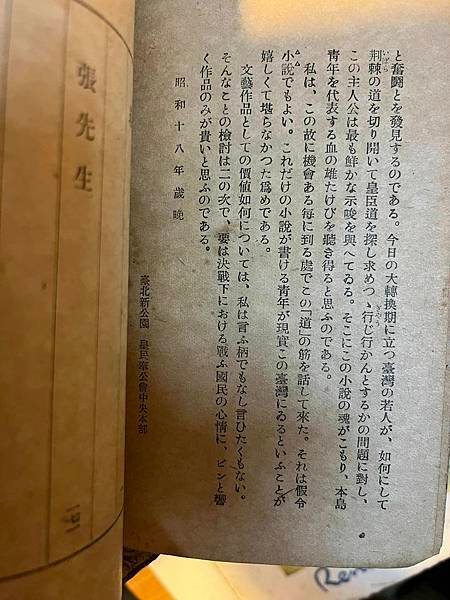 と奮鬪とを發見するのである。今日の大轉換期に立つ臺灣の若人が、如何にして
荆棘の道を切り開いて皇臣道を探し求めつゝ行じ行かんとするかの問題に對し、
この主人公は最も鮮かな示唆を與へてゐる。そこにこの小說の魂がこもり、本島
靑年を代表する血の雄たけびを聽き得ると思ふのである。
私は、この故に機會ある每に到る處でこの「道」の筋を話して來た。それは假令
小說でもよい。これだけの小說が書ける靑年が現實この臺灣にゐるといふことが
嬉しくて堪らなかつた爲めである。
文藝作品としての價値如何については、私は言ふ柄でもなし言ひたくもない。
そんなことの檢討は二の次で、要は決戰下における戰ふ國民の心情に、ピンと響
く作品のみが貴いと思ふのである。
昭和十八年歲晚
臺北新公園 皇民奉公會中央本部
張先生